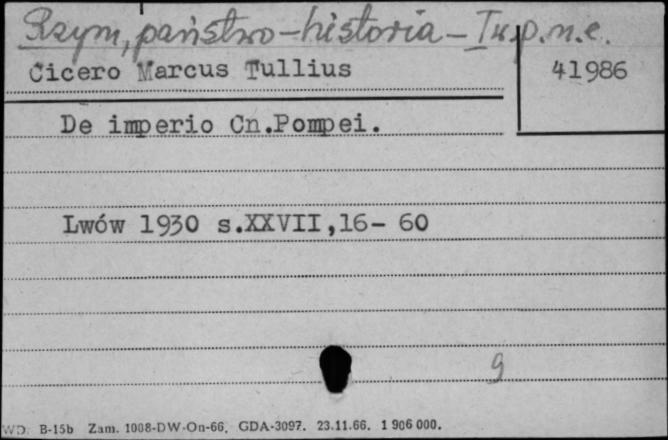 Rzym, państwo-historia - I w.p.n.e.
Cicero Marcus Tullius
41986
De imperio Cn.Pompei.
Lwów 1930 s.XXVII,16- 60
9
WD. B-15b Zam. 1008-DW-On-66. GDA-3097. 23.11.66. 1 906 000.